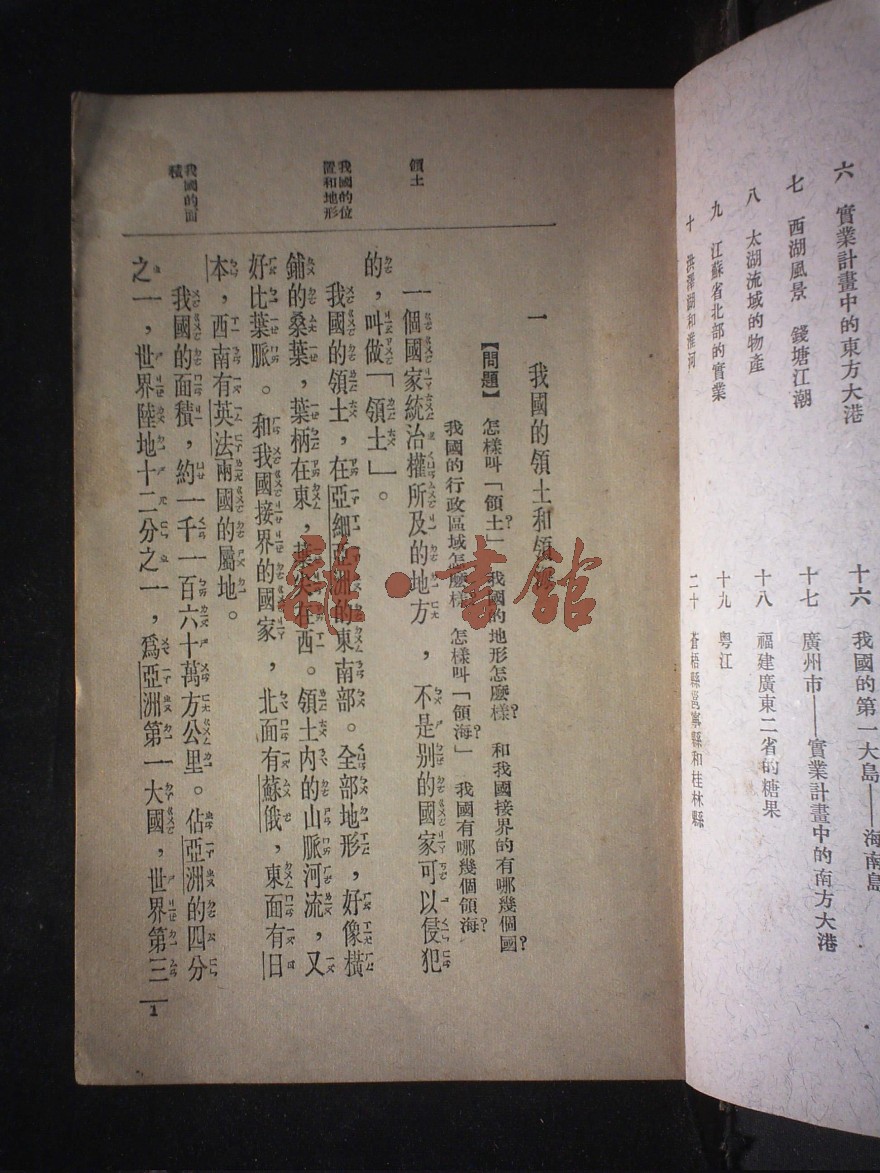 六 實業計畫中的東方大港
七 西湖風景 錢塘江潮
八 太湖流域的物產
九 江蘇省北部的實業
十 洪澤湖和淮河
十六 我國的第一大島——海南島
十七 廣州市——實業計畫中的南方大港
十八 福建廣東二省的糖果
十九 粵江
二十 蒼梧縣邕寧縣和桂林縣
一 我國的領土和領
【問題】 怎樣叫「領土」? 我國的地形怎麼樣? 和我國接界的有哪幾個國?
我國的行政區域怎麼樣? 怎樣叫「領海」? 我國有哪幾個領海?
領土
一個國家統治權所及的地方,不是別的國家可以侵犯
的,叫做「領土」。
我國的位
置和地形
我國的領土,在亞細亞洲的東南部。全部地形,好像橫
鋪的桑葉,葉柄在東,葉尖在西。領土內的山脈河流,又
好比葉脈。和我國接界的國家,北面有蘇俄,東面有日
本,西南有英法兩國的屬地。
我國的面
積
我國的面積,約一千一百六十萬方公里。佔亞洲的四分
之一,世界陸地十二分之一,爲亞洲第一大國,世界第三
1
雜·書館